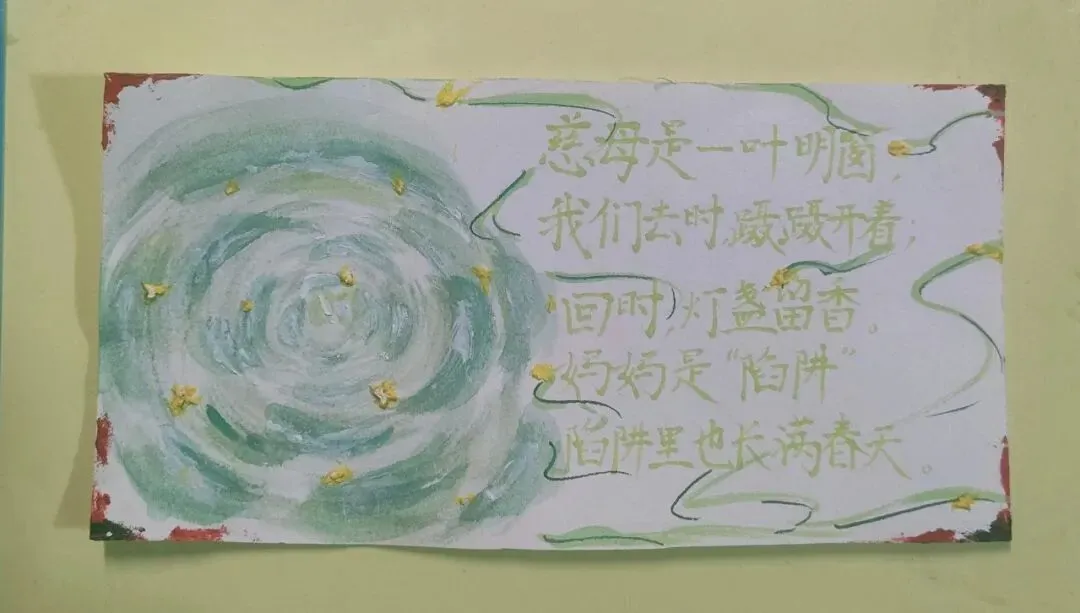 慈母是一叶明窗，
我们去时，蹑蹑开看；
回时，灯盏留香。
妈妈是“陷阱”
陷阱里也长满春天。